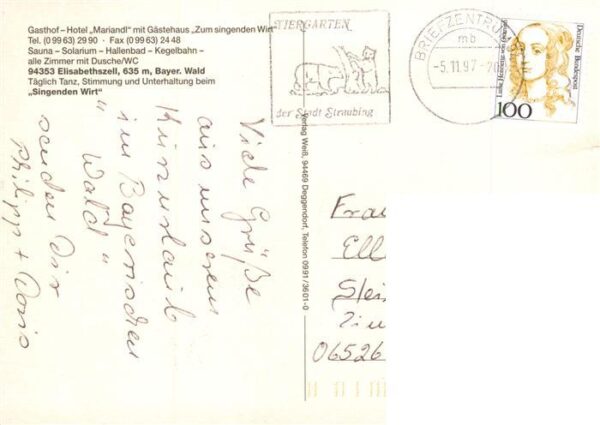 Gasthof – Hotel „Mariandl“ mit Gästehaus „Zum singenden Wirt“
Tel. (0 99 63) 29 90 · Fax (0 99 63) 24 48
Sauna – Solarium – Hallenbad – Kegelbahn –
alle Zimmer mit Dusche/WC
94353 Elisabethszell, 635 m, Bayer. Wald
Täglich Tanz, Stimmung und Unterhaltung beim
„Singenden Wirt“
TIERGARTEN
der Stadt Straubing
BRIEFZENTRUM
mb
-5.11.97
Deutsche Bundespost
Luise Henriette von Oranien
100
Verlag Weiß, 94469 Deggendorf, Telefon 09 91/36 01-0
Viele Grüße
aus unserem
Kurzurlaub
im Bayerischen
" Wald "
senden Dir
Philipp + Doris
Frau
Ell
06526